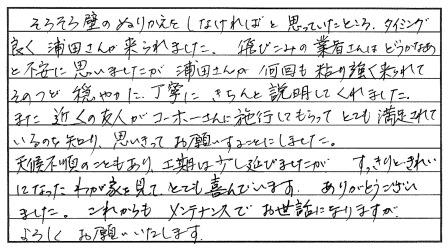 そろそろ壁のぬりかえをしなければと思っていたところ、タイミング
良く浦田さんが来られました。飛びこみの業者さんはどうかなあ
と不安に思いましたが浦田さんが何回も粘り強く来られて
そのつど穏やかに丁寧にきちんと説明してくれました。
また近くの友人がコーホーさんに施行してもらってとても満足されて
いるのを知り、思いきってお願いすることにしました。
天候不順のこともあり、工期は少し延びましたが すっきりときれい
になったわが家を見て、とても喜んでいます。ありがとうござい
ました。これからもメンテナンスでお世話になりますが
よろしくお願いいたします。